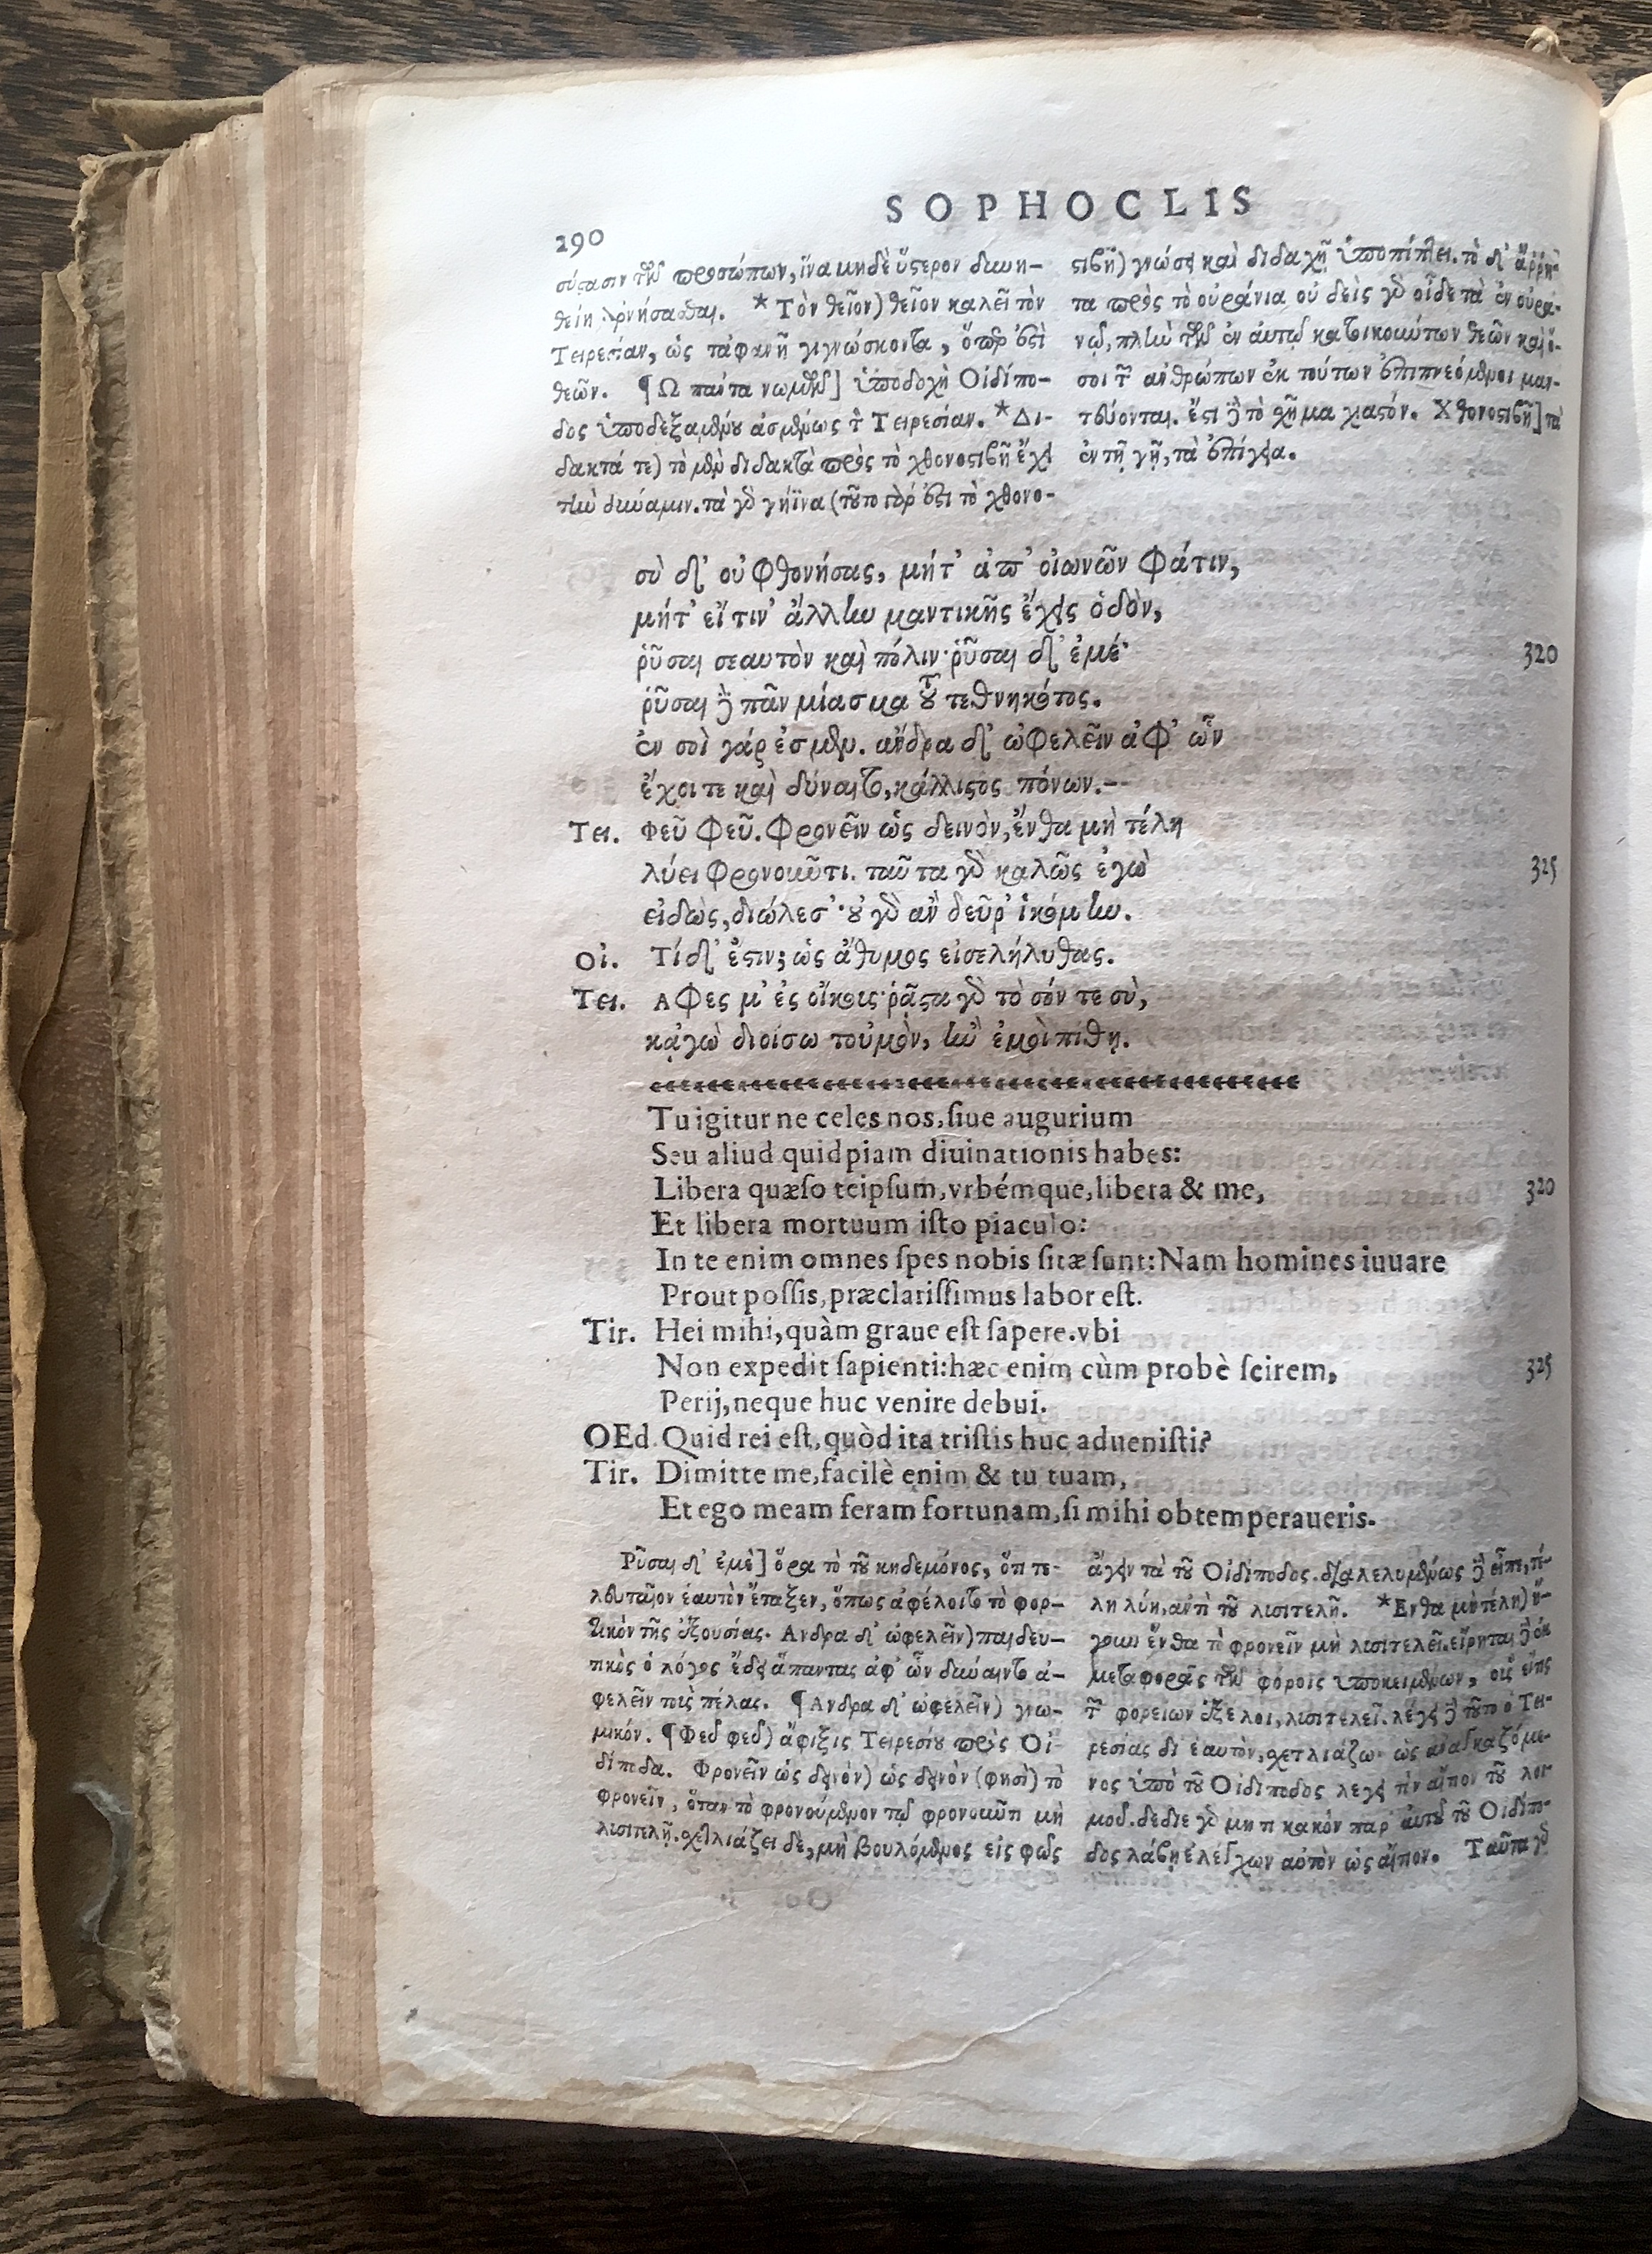 SOPHOCLIS
290
σύστασιν τῶν προσώπων, ἵνα μηδὲ ὕστερον δυνη-
θείη ἀρνήσασθαι. * Τὸν θεῖον) θεῖον καλεῖ τὸν
Τειρεσίαν, ὡς τἀφανῆ γιγνώσκοντα, ὅπερ ἐστὶ
θεῶν. ¶ Ω πάντα νωμῶν] ὑποδοχὴ Οἰδίπο-
δος ὑποδεξαμένου ἀσμένως τ Τειρεσίαν. * Δι-
δακτά τε) τὸ μὲν διδακτὰ πρὸς τὸ χθονοστιβῆ ἔχει
τὴν δύναμιν. τὰ γὸ γήϊνα (τοῦτο γάρ ἐστι τὸ χθονο-
στιβῆ) γνώσει καὶ διδαχῇ ὑποπίπτει. τὸ δ' ἄρρη-
τα πρὸς τὸ οὐράνια οὐδεὶς γὸ οἶδε τὰ ἐν οὐρα-
νῷ, πλὴν τῶν ἐν αὐτῷ κατοικούντων θεῶν καὶ ὅ-
σοι τ ἀνθρώπων ἐκ τούτων ἐπιπνεόμενοι μαν-
τεύονται. ἔστι δὲ τὸ σχῆμα χιαστόν. Χθονοστιβῆ] τὰ
ἐν τῇ γῇ, τὰ ἐπίγεια.
σὺ δ' οὐ φθονήσας, μήτ' ἀπ' οἰωνῶν φάτιν,
μήτ' εἴ τιν' ἄλλην μαντικῆς ἔχεις ὁδὸν,
ῥῦσαι σεαυτὸν καὶ πόλιν· ῥῦσαι δ' ἐμέ· 320
ῥῦσαι δὲ πᾶν μίασμα τοῦ τεθνηκότος.
ἐν σοὶ γάρ ἐσμεν. ἄνδρα δ' ὠφελεῖν ἀφ' ὧν
ἔχοι τε καὶ δύναιτο, κάλλιστος πόνων.--
Τει. Φεῦ φεῦ. φρονεῖν ὡς δεινὸν, ἔνθα μὴ τέλη
λύει φρονοῦντι. ταῦτα γὸ καλῶς ἐγὼ 325
εἰδὼς, διώλεσ'· οὐ γὸ ἂν δεῦρ' ἱκόμην.
Οἰ. Τί δ' ἔστιν; ὡς ἄθυμος εἰσελήλυθας.
Τει. Αφες μ' ἐς οἴκοις· ῥᾷστα γὸ τὸ σόν τε σὺ,
κᾀγὼ διοίσω τοὐμὸν, ἢν ἐμοὶ πίθῃ.
Tu igitur ne celes nos, ſiue augurium
Seu aliud quidpiam diuinationis habes:
Libera quæſo teipſum, vrbémque, libera & me, 320
Et libera mortuum iſto piaculo:
In te enim omnes ſpes nobis ſitæ ſunt: Nam homines iuuare
Prout poſſis, præclariſſimus labor eſt.
Tir. Hei mihi, quàm graue eſt ſapere. vbi
Non expedit ſapienti: hæc enim cùm probè ſcirem, 325
Perij, neque huc venire debui.
OEd. Quid rei eſt, quòd ita triſtis huc adueniſti?
Tir. Dimitte me, facilè enim & tu tuam,
Et ego meam feram fortunam, ſi mihi obtemperaueris.
Ρῦσαι δ' ἐμὲ] ὅρα τὸ τοῦ κηδεμόνος, ὅτι τε-
λευταῖον ἑαυτὸν ἔταξεν, ὅπως ἀφέλοιτο τὸ φορ-
τικὸν τῆς ἐξουσίας. Ανδρα δ' ὠφελεῖν) παιδευ-
τικὸς ὁ λόγος ἔδει ἅπαντας ἀφ' ὧν δύναιντο ὠ-
φελεῖν τοὺς πέλας. ¶ Ανδρα δ' ὠφελεῖν) γνω-
μικόν. ¶ Φεῦ φεῦ) ἄφιξις Τειρεσίου πρὸς Οἰ-
δίποδα. Φρονεῖν ὡς δεινὸν) ὡς δεινὸν (φησὶ) τὸ
φρονεῖν, ὅταν τὸ φρονούμενον τῷ φρονοῦντι μὴ
λυσιτελῇ. σχετλιάζει δὲ, μὴ βουλόμενος εἰς φῶς
ἄγειν τὰ τοῦ Οἰδίποδος. διαλελυμένως δὲ εἶπε, τέ-
λη λύῃ, ἀντὶ τοῦ λυσιτελῇ. * Ενθα μὴ τέλη) ἤ-
γουν ἔνθα τὸ φρονεῖν μὴ λυσιτελεῖ. εἴρηται δὲ ἐκ
μεταφορᾶς τῶν φόροις ὑποκειμένων, οἷς εἴ τις
τ φορείων ἐξέλοι, λυσιτελεῖ. λέγει δὲ τοῦτο ὁ Τει-
ρεσίας δι ἑαυτὸν, σχετλιάζω· ὡς ἀναγκαζόμε-
νος ὑπὸ τοῦ Οἰδίποδος λέγει τὴν αἴτιον τοῦ λοι-
μοῦ. δέδιε γὸ μή τι κακὸν παρ' αὐτοῦ τοῦ Οἰδίπο-
δος λάβῃ ἐλέγχων αὐτὸν ὡς αἴτιον. Ταῦτα γὸ